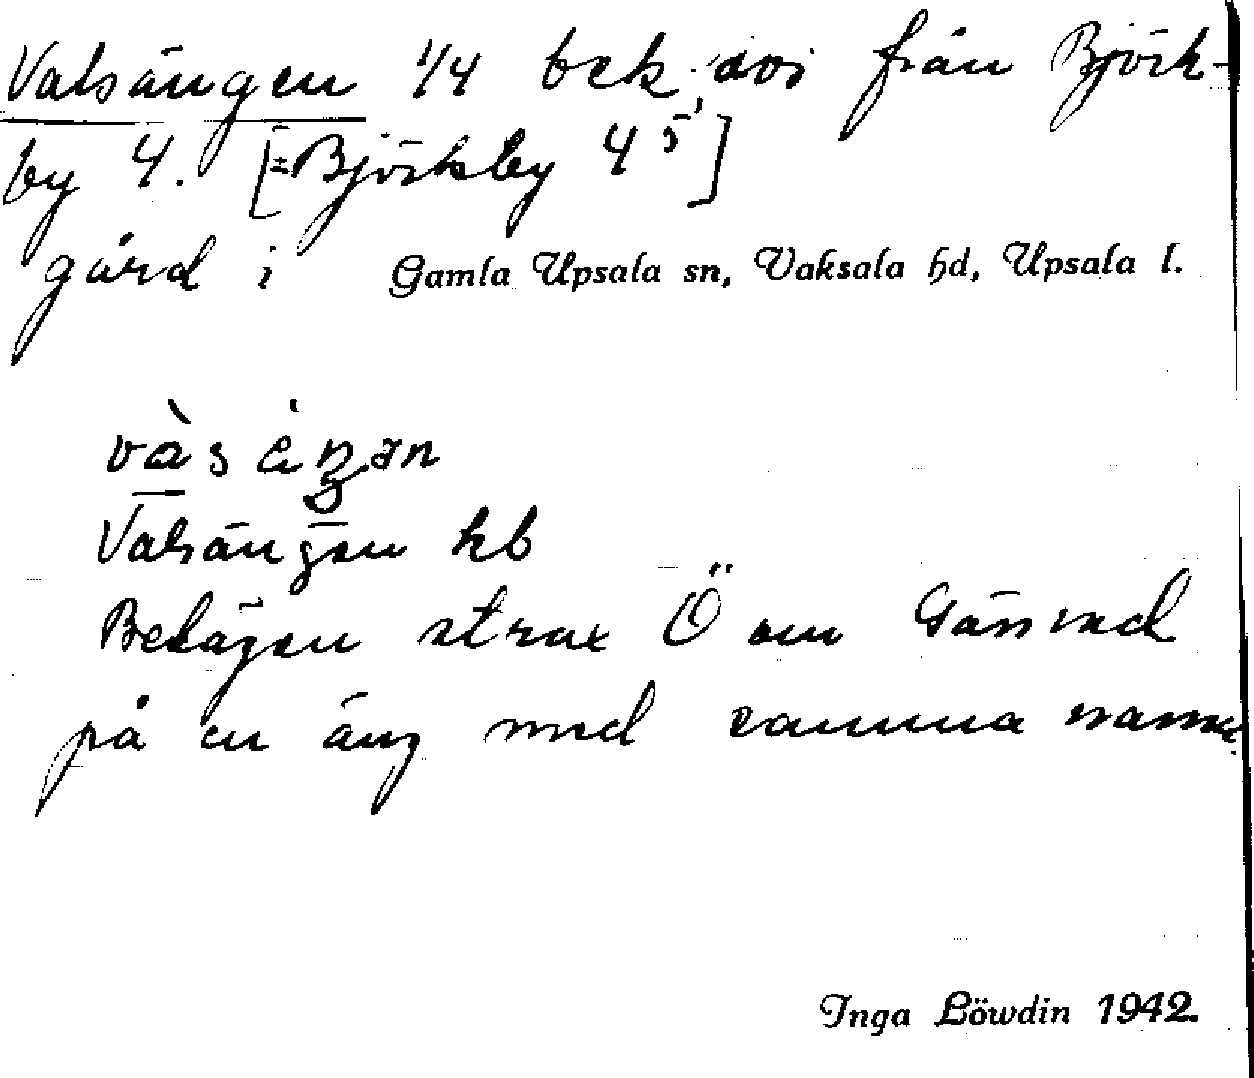 Valsängen 1/4 bek. avs från Björk-
by 4. [=Björkby 4⁵]
gård i Gamla Upsala sn, Vaksala hd, Upsala l.
Valsängen kb
Belägen strax Ö om Gäsvad
på en äng med samma namn.
Inga Löwdin 1942.